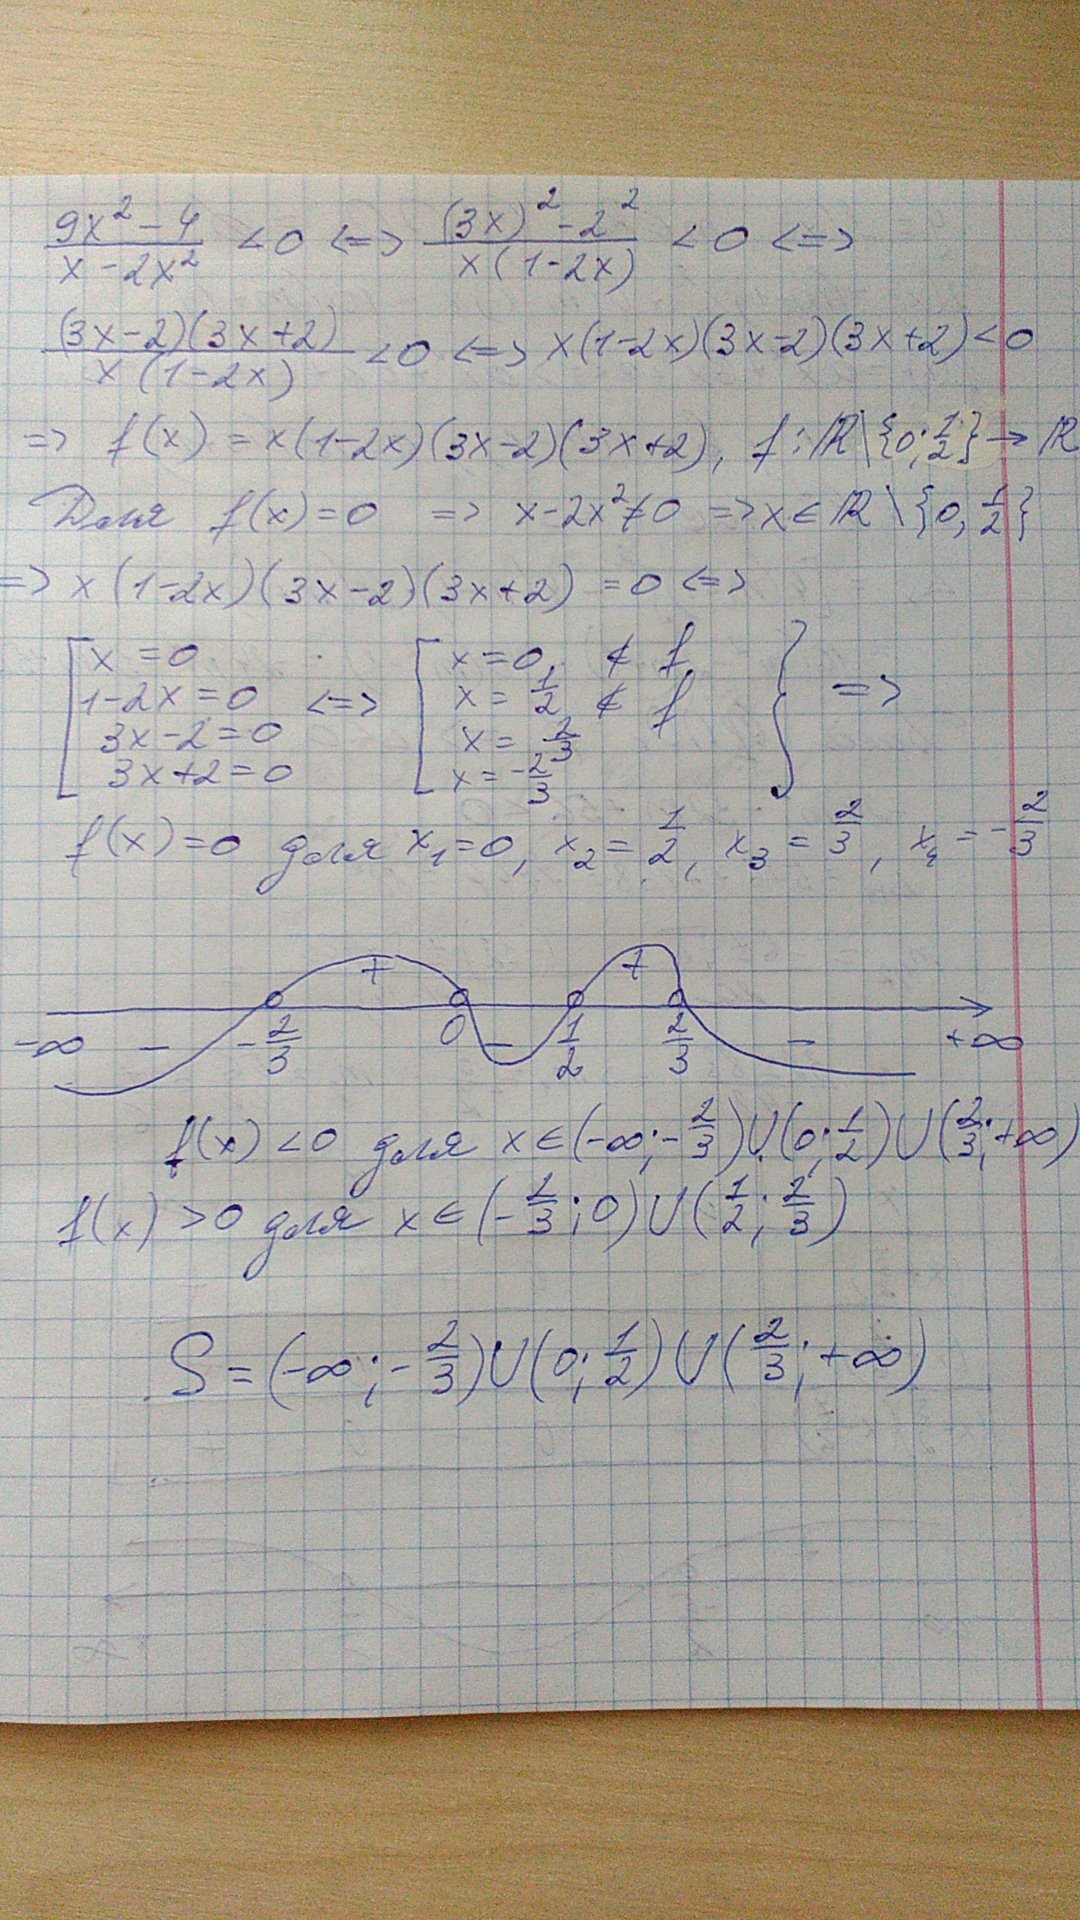 (9x² - 4)/(x - 2x²) < 0 <=> ((3x)² - 2²)/(x(1-2x)) < 0 <=>
((3x-2)(3x+2))/(x(1-2x)) < 0 <=> x(1-2x)(3x-2)(3x+2) < 0
=> f(x) = x(1-2x)(3x-2)(3x+2), f: ℝ\{0; 1/2} → ℝ
Для f(x) = 0 => x - 2x² ≠ 0 => x ∈ ℝ \ {0, 1/2}
=> x(1-2x)(3x-2)(3x+2) = 0 <=>
[ x = 0 [ x = 0, ∉ f }
1-2x = 0 <=> x = 1/2 ∉ f =>
3x-2 = 0 x = 2/3
3x+2 = 0 x = -2/3
f(x) = 0 для x₁ = 0, x₂ = 1/2, x₃ = 2/3, x₄ = -2/3
+ +
-∞ - -2/3 0 - 1/2 2/3 - +∞
f(x) < 0 для x ∈ (-∞; -2/3) U (0; 1/2) U (2/3; +∞)
f(x) > 0 для x ∈ (-2/3; 0) U (1/2; 2/3)
S = (-∞; -2/3) U (0; 1/2) U (2/3; +∞)